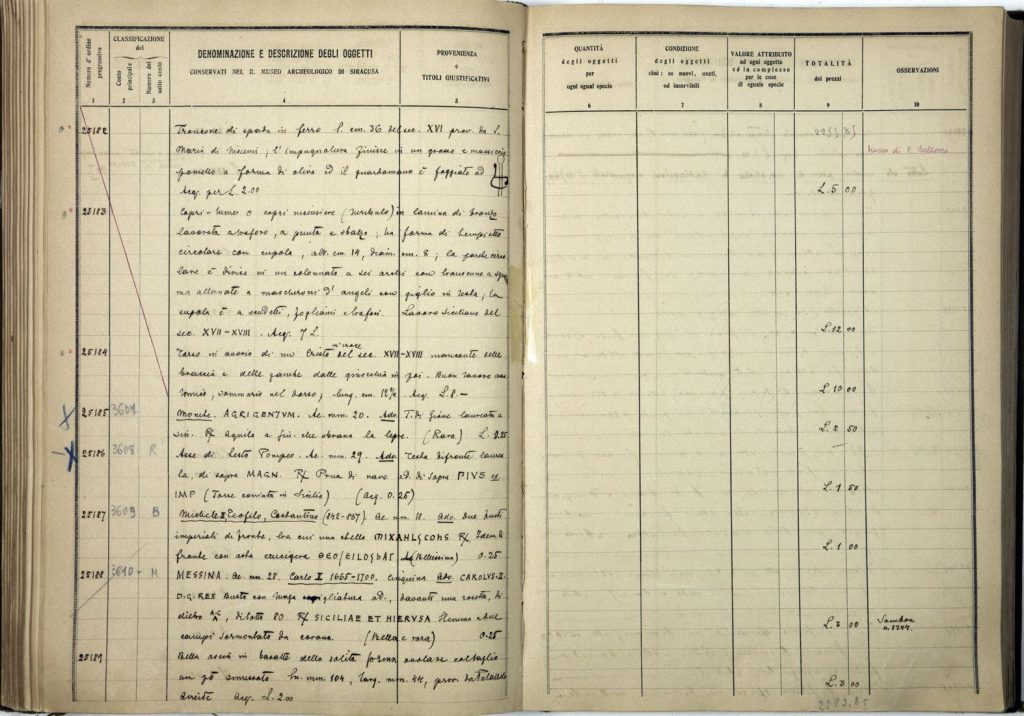 Numero d'ordine progressivo
CLASSIFICAZIONE
del
Conto principale
Numero del sotto conto
DENOMINAZIONE E DESCRIZIONE DEGLI OGGETTI
CONSERVATI NEL R. MUSEO ARCHEOLOGICO DI SIRACUSA
PROVENIENZA
e
TITOLI GIUSTIFICATIVI
1 2 3 4 5
QUANTITÀ
degli oggetti
per
ogni egual specie
CONDIZIONE
degli oggetti
cioè: se nuovi, usati,
od inservibili
VALORE ATTRIBUITO
ad ogni oggetto
ed in complesso
per le cose
di eguale specie
TOTALITÀ
dei prezzi
OSSERVAZIONI
6 7 8 9 10
25182 Troncone di spada in ferro l. cm. 36 del sec. XVI prov. da S.
Maria di ; l'impugnatura finisce in un grosso e massiccio
pometto a forma di oliva ed il guardamano è foggiato ad
Acq. per L. 2.00
L. 5 00
Museo di P. Bellomo
25183 (turibolo) in lamina di bronzo
lavorata a traforo, a punta e sbalzo; ha forma di tempietto
circolare con cupola, alt. cm. 14, diam. cm. 8; la parete circo
lare è divisa in un colonnato a sei archi con
ma alternate a mascheroni d'angeli con giglio in testa; la
cupola è a scudetti, fogliami e trafori. Lavoro siciliano del
sec. XVII-XVIII. Acq. 7 L.
L. 12 00
25184 Torso in avorio di un Cristo in croce del sec. XVII-XVIII mancante delle
braccia e delle gambe dalle ginocchia in poi. Buon lavoro ana
tomico, sommario nel dorso; lung. cm. 12 ½. Acq. L. 8.-
L. 10 00
25185 3607 Monete. AGRIGENTVM. Ae. mm. 20. Ado. T. di Giove laureata a
sin. R/ Aquila a sin. che sbrana la lepre. (Rara) L. 0.25
L. 2 50
25186 3608 R Asse di Sesto Pompeo. Ae. mm. 29. Ado. Testa di fronte laurea
ta, di sopra MAGN. R/ Prua di nave a d. di sopra PIVS
IMP (Torre coniata in Sicilia) (Acq. 0.25)
L. 1 50
25187 3609 B Michele II, Teofilo, Costantino (842-867). Ae. mm 18. Ado. due busti
imperiali di fronte, tra cui una stella MIXAHLSCONS R/ Idem di
fronte con asta crucigera (Bellissima) 0.25
L. 1 00
25188 3610 M MESSINA. Ae. mm. 28. Carlo II 1665-1700. Cinquina Ado. CAROLVS. II.
D.G. REX Busto con lunga capigliatura a d., davanti una rosetta, di
dietro , di sotto 80 R/ SICILIAE ET HIERVSA Stemma a due
campi sormontato da corona. (Bella e rara) 0.25
L. 3 00
Sambon
n. 1244.
25189 Bella ascia in basalte della solita forma ovolare col taglio
un pò smussato lu. mm. 104, larg. mm. 44, prov. da
Acq. L. 2.00
L. 3 00
2293,85